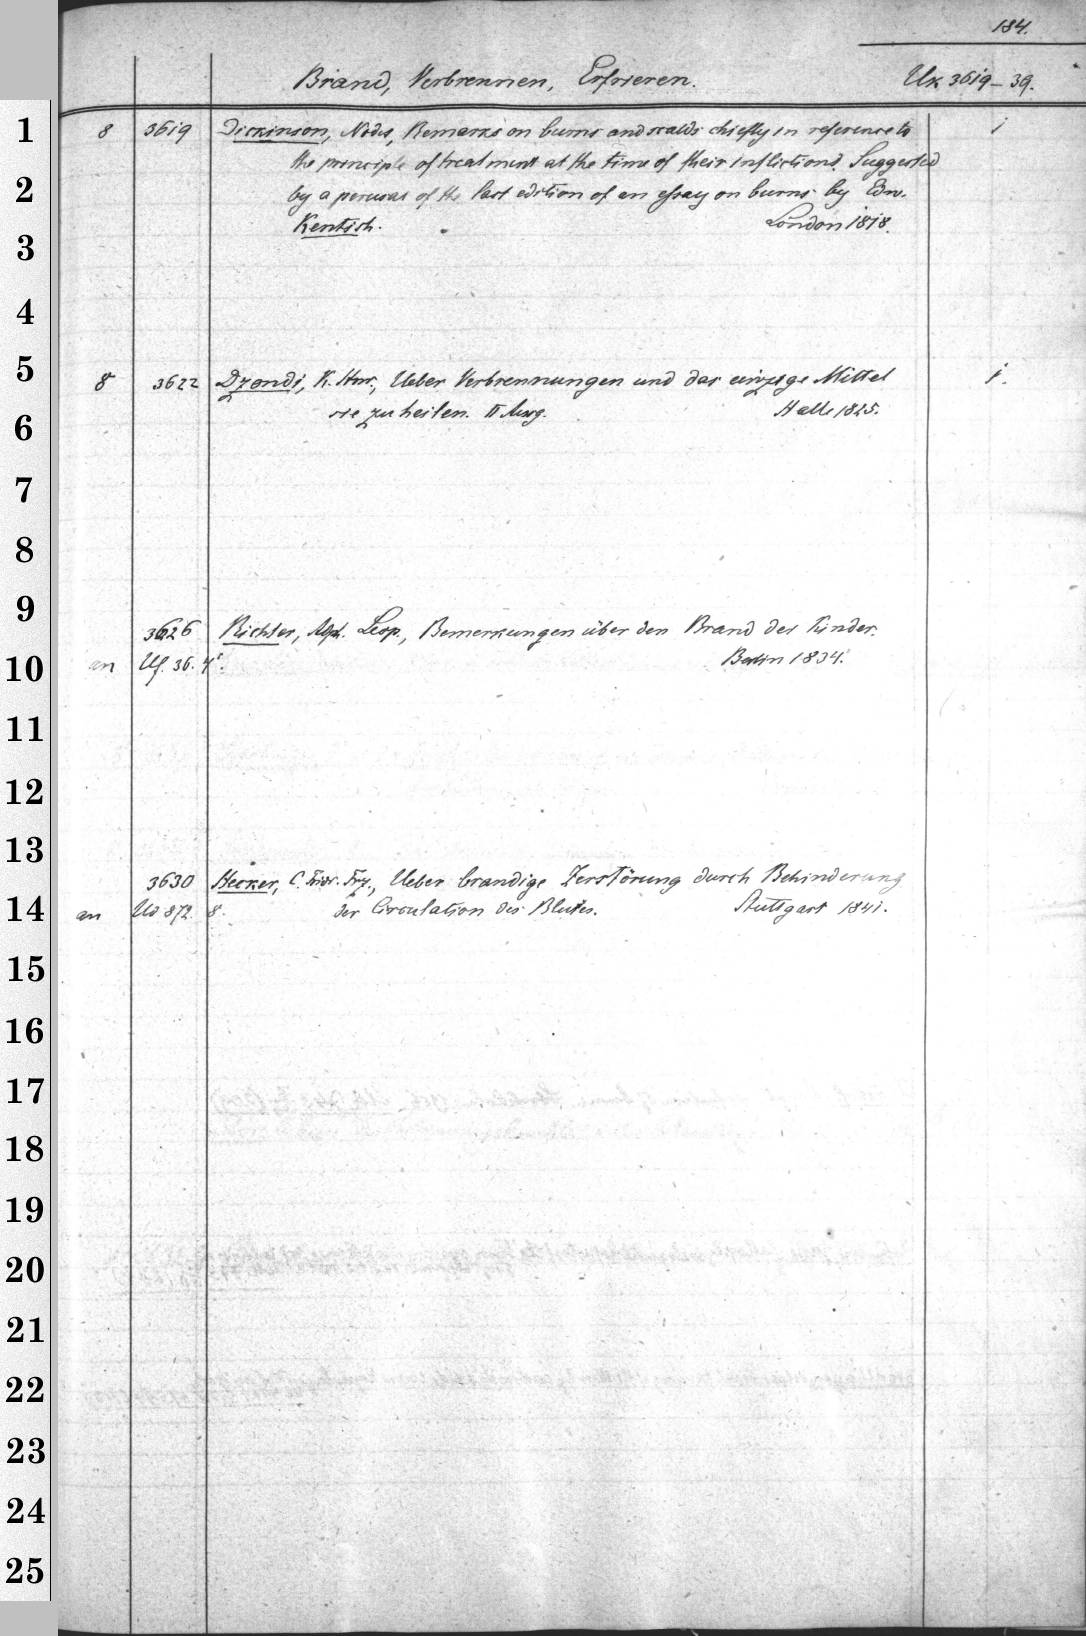 184.
Brand, Verbrennen, Erfrieren. Uk 3619-39.
1
8 3619 Dickinson, Nods, Remarks on burns and scalds chiefly in reference to 1
the principle of treatment at the time of their inflictions. Suggested
2
by a perusal of the last edition of an essay on burns by Edw.
Kentish. London 1818.
3
4
5
8 3622 Dzondi, K. Hnr., Ueber Verbrennungen und das einzige Mittel 1.
sie zu heilen. II Ausg. Halle 1825.
6
7
8
9
3626 Richter, Adph. Leop., Bemerkungen über den Brand der Kinder.
10
an Uf. 36. 4°. Berlin 1834.
11
12
13
3630 Hecker, C. Fridr. Frz., Ueber brandige Zerstörung durch Behinderung
14
an Ud 872 8. der Circulation des Blutes. Stuttgart 1841.
15
16
17
18
19
20
21
22
23
24
25